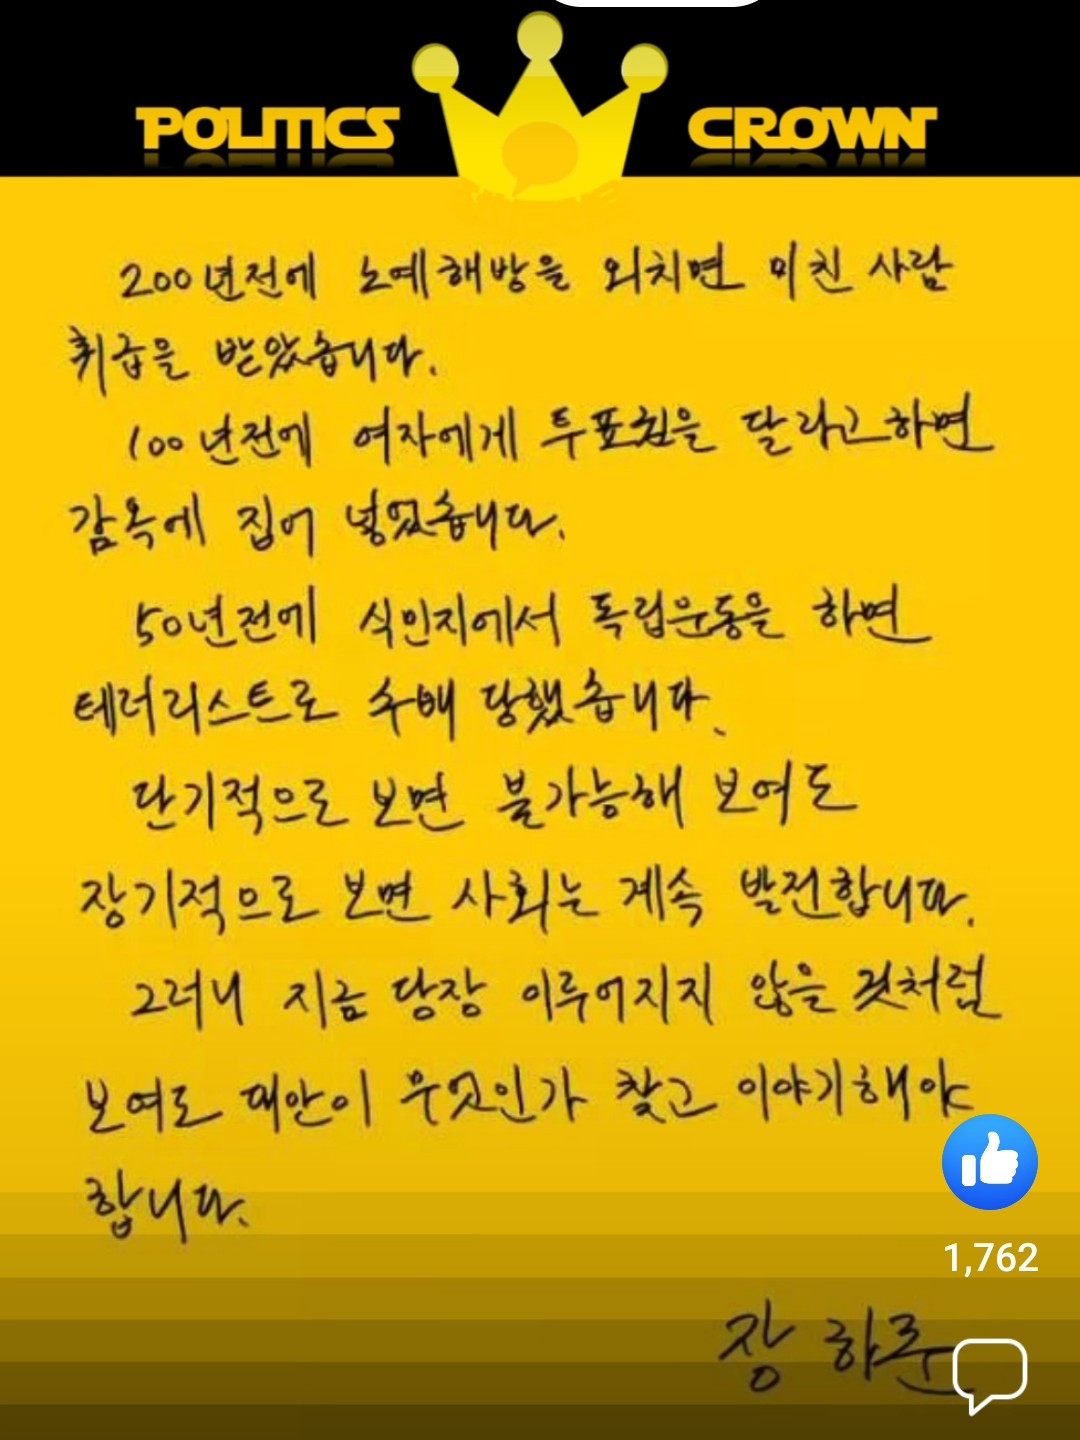 POLITICS CROWN
200년전에 노예해방을 외치면 미친 사람
취급을 받았습니다.
100년전에 여자에게 투표권을 달라고하면
감옥에 집어 넣었습니다.
50년전에 식민지에서 독립운동을 하면
테러리스트로 수배 당했습니다.
단기적으로 보면 불가능해 보여도
장기적으로 보면 사회는 계속 발전합니다.
그러니 지금 당장 이루어지지 않을 것처럼
보여도 대안이 무엇인가 찾고 이야기해야
합니다.
1,762
장하준